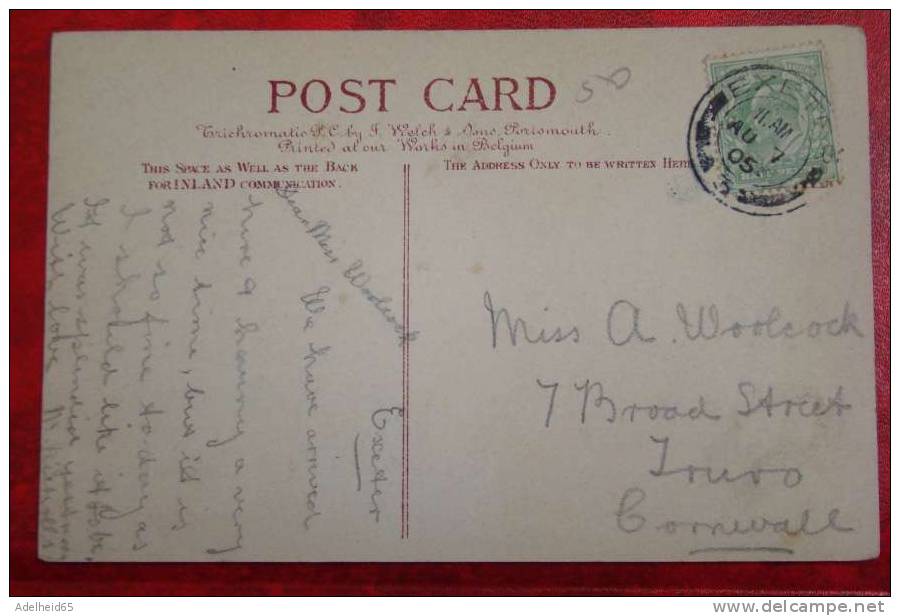 POST CARD
50
Trichromatic P.C. by J. Welch & Sons, Portsmouth.
Printed at our Works in Belgium
THIS SPACE AS WELL AS THE BACK
FOR INLAND COMMUNICATION.
THE ADDRESS ONLY TO BE WRITTEN HERE
EXETER
11. AM
AU 7
05
Exeter
Dear Miss Woolcock
We have arrived
here & having a very
nice time, but it is
not so fine to-day as
I should like it to be,
It was splendid yesterday
With love M. Nicholls
Miss A. Woolcock
7 Broad Street
Truro
Cornwall
Adelheid65
www.delcampe.net